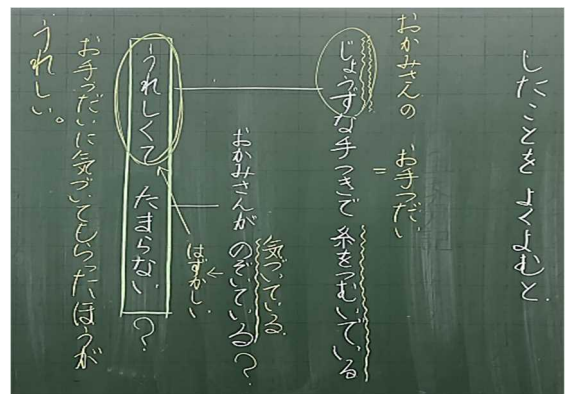 したことを よくよむと、
おかみさんの お手つだい
＝
じょうずな手つきで 糸をつむいでいる
気づいている
おかみさんが のぞいている？
はずかしい
うれしくて たまらない ？
お手つだいに気づいてもらったほうが
うれしい。